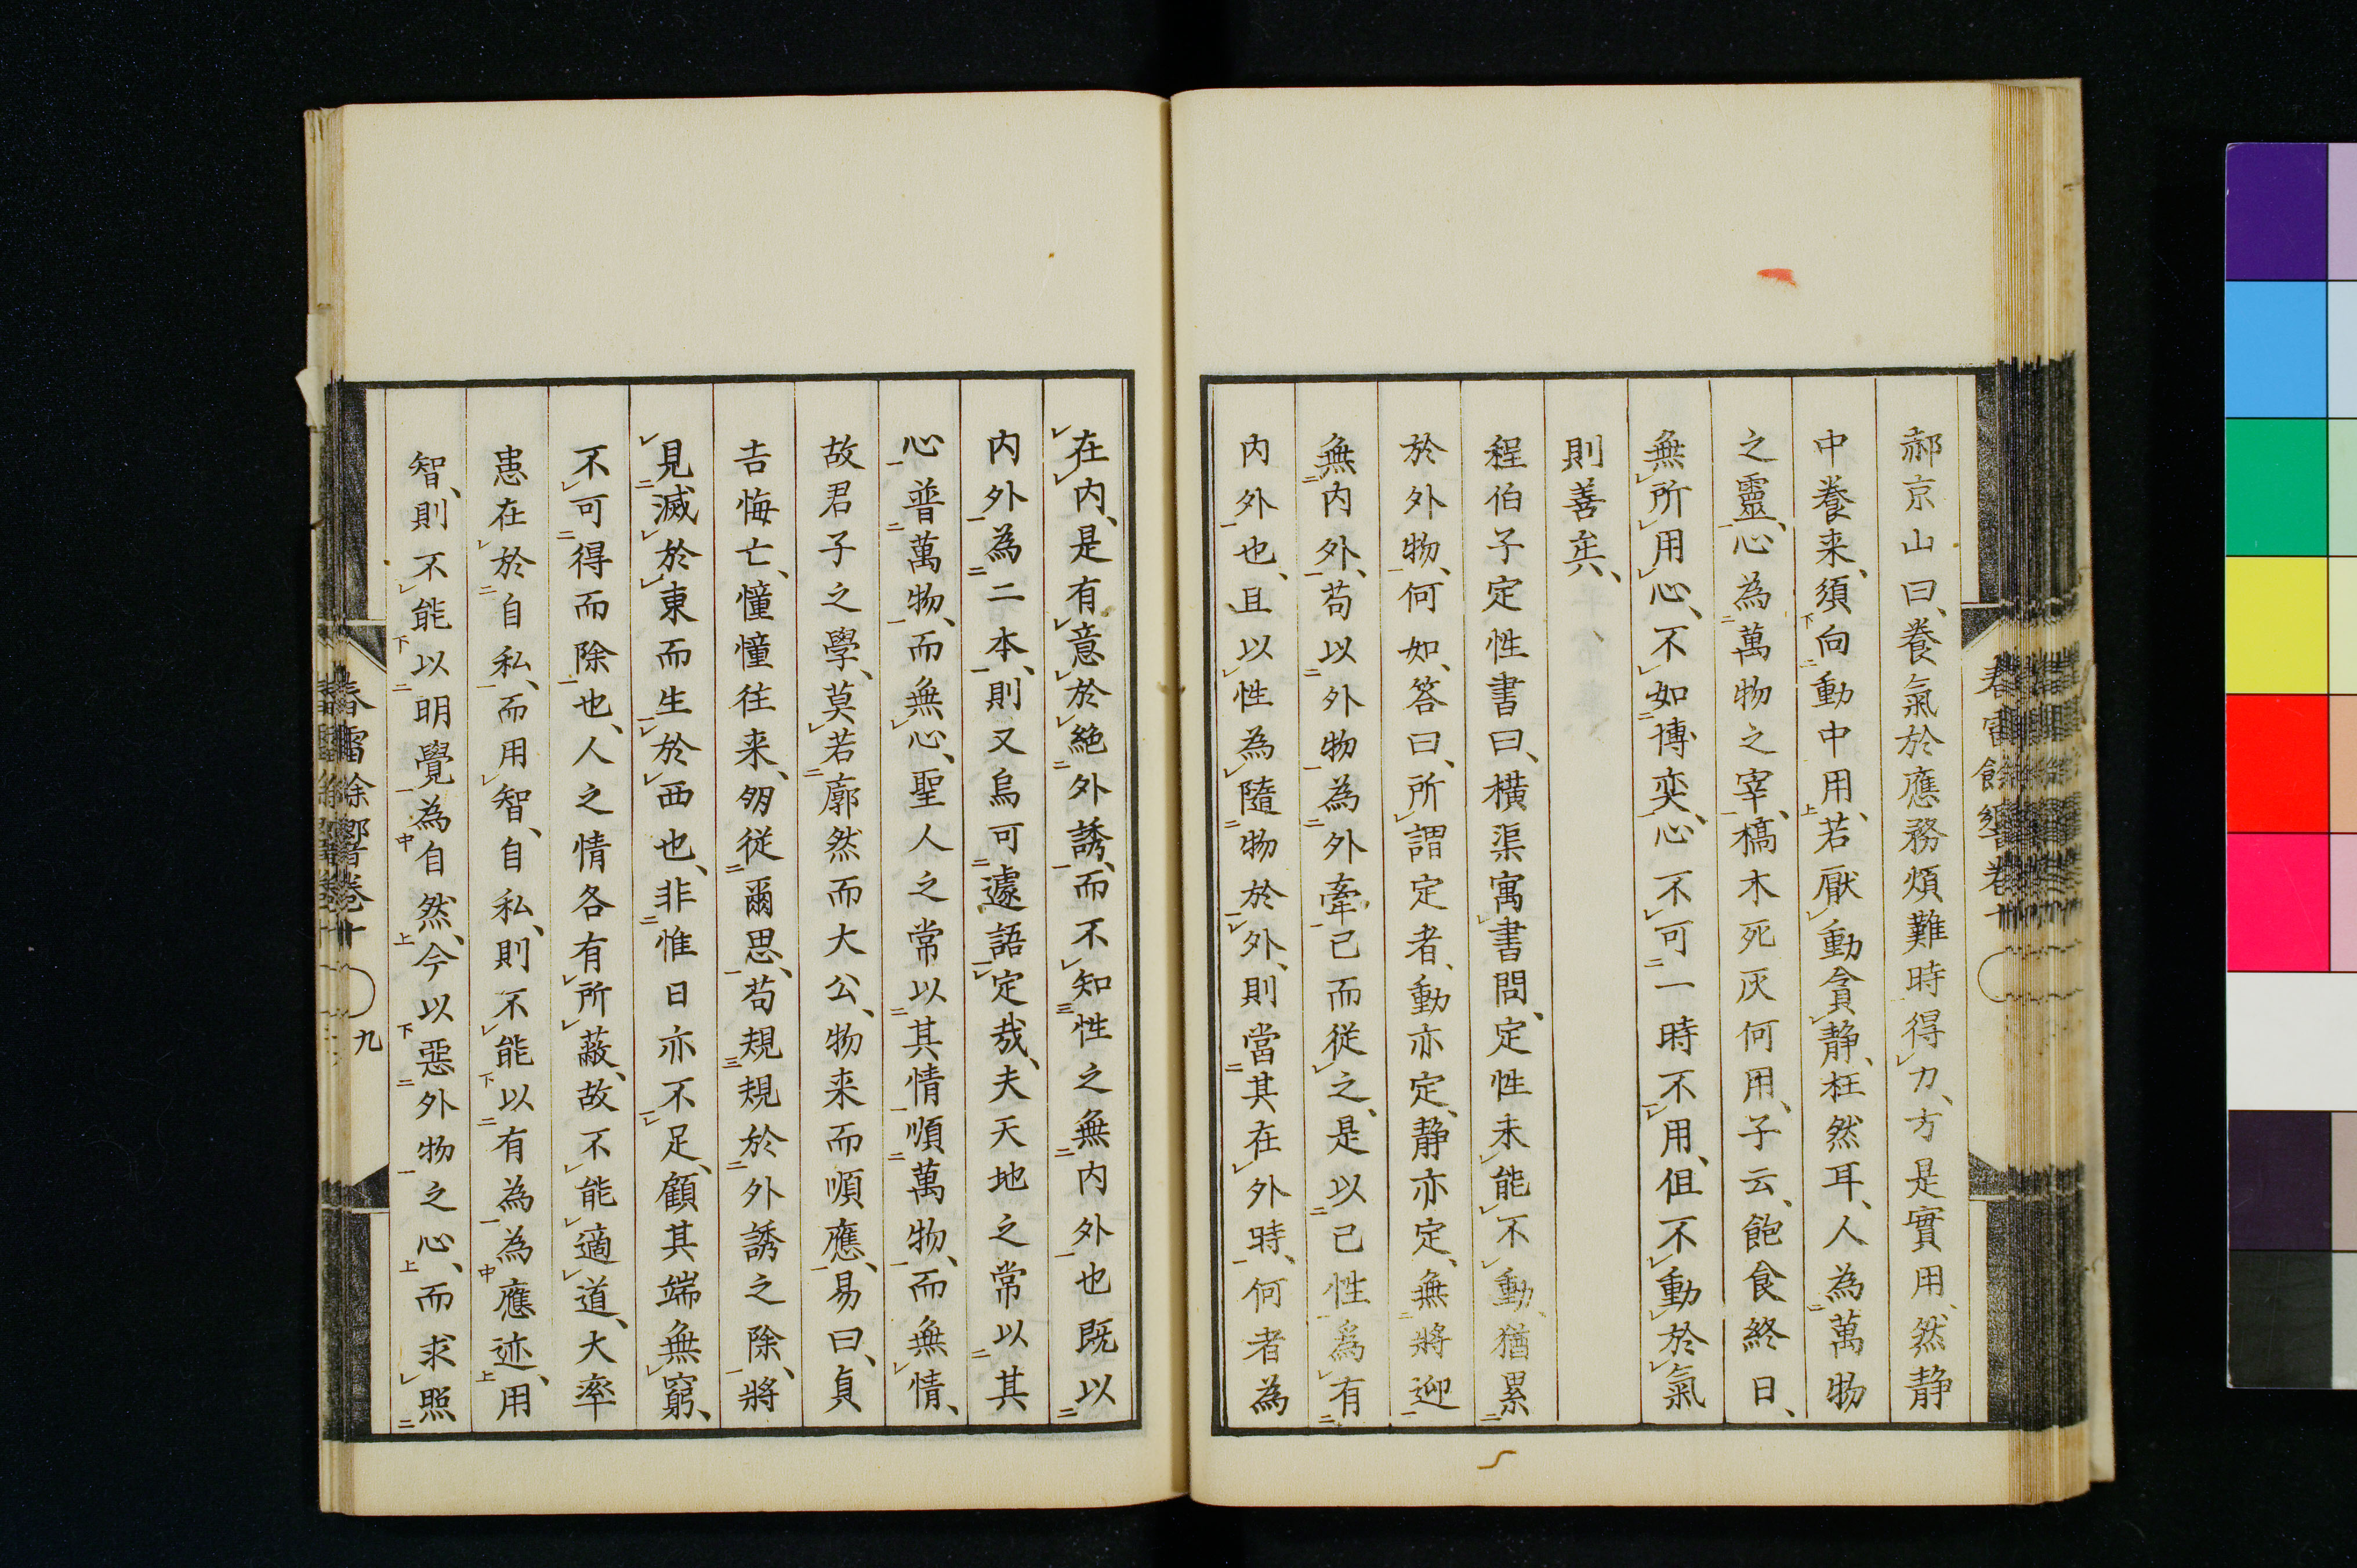 郝京山曰、養氣於應務煩難時得力、方是實用、然静
中養来、須向動中用、若厭動貪静、枉然耳、人為萬物
之靈、心為萬物之宰、槁木死灰何用、子云、飽食終日、
無所用心、不如博奕、心不可一時不用、但不動於氣
則善矣、
程伯子定性書曰、横渠寓書問、定性未能不動、猶累
於外物、何如、答曰、所謂定者、動亦定、静亦定、無將迎
無内外、苟以外物為外牽己而従之、是以己性為有
内外也、且以性為隨物於外、則當其在外時、何者為
在内、是有意於絶外誘、而不知性之無内外也既以
内外為二本、則又烏可遽語定哉、夫天地之常以其
心普萬物、而無心、聖人之常以其情順萬物、而無情、
故君子之學、莫若廓然而大公、物来而順應、易曰、貞
吉悔亡、憧憧往来、朋従爾思、苟規規於外誘之除、將
見滅於東而生於西也、非惟日亦不足、顧其端無窮、
不可得而除也、人之情各有所蔽、故不能適道、大率
患在於自私、而用智、自私、則不能以有為為應迹、用
智、則不能以明覺為自然、今以惡外物之心、而求照
春雷餘響卷十
九